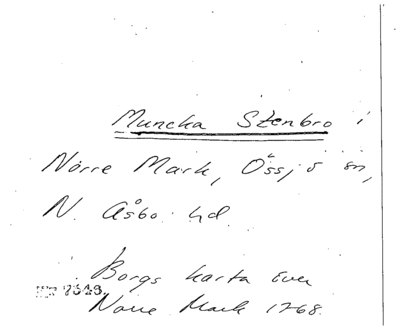 Muncka Stenbro i
Norre Mark, Össjö sn,
N. Åsbo hd.
Borgs karta över
Norre Mark 1768.